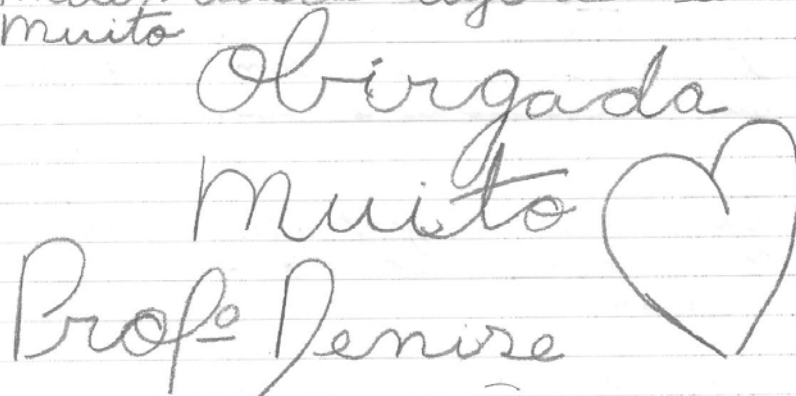 muito
Obirgada
Muito
Profª Denise